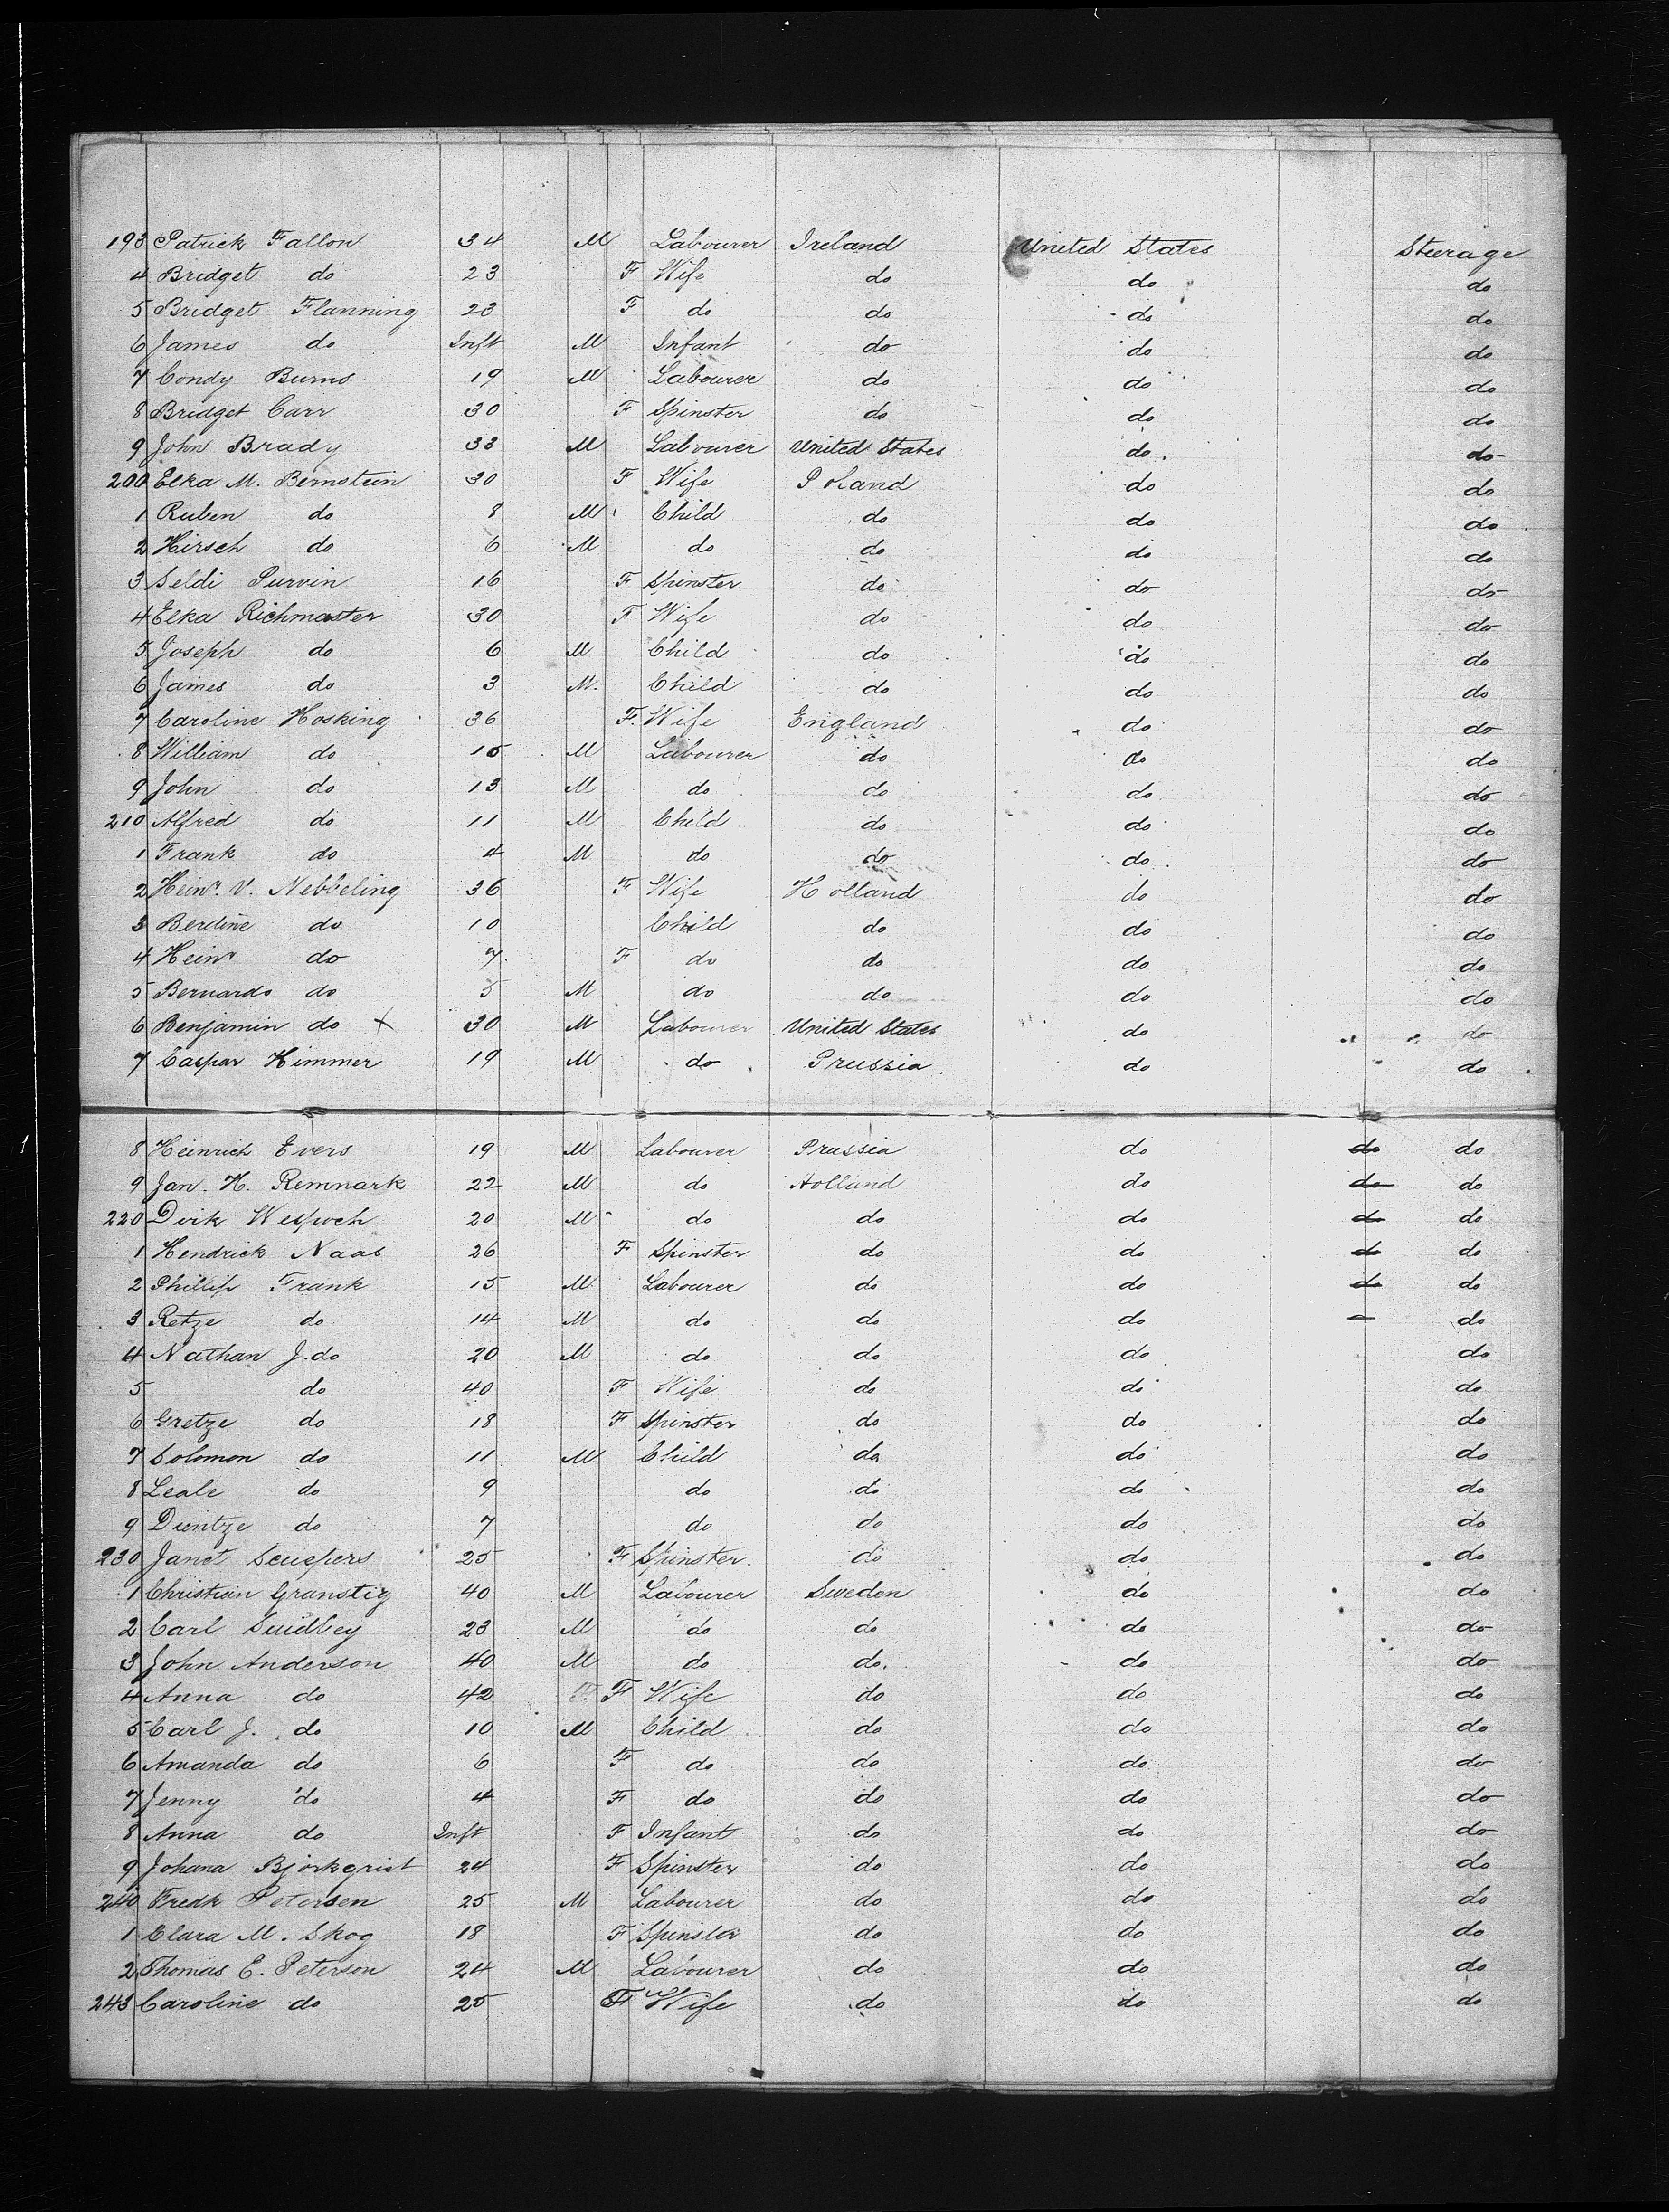 193 Patrick Fallon 34 M Labourer Ireland United States Steerage
4 Bridget do 23 F Wife do do do
5 Bridget Flanning 23 F do do do do
6 James do Inft M Infant do do do
7 Condy Burns 19 M Labourer do do do
8 Bridget Carr 30 F Spinster do do do
9 John Brady 33 M Labourer United States do do
200 Elka M. Bernstein 30 F Wife Poland do do
1 Ruben do 8 M Child do do do
2 Hirsch do 6 M do do do do
3 Seldi Purvin 16 F Spinster do do do
4 Elka Richmaster 30 F Wife do do do
5 Joseph do 6 M Child do do do
6 James do 3 M. Child do do do
7 Caroline Hosking 36 F. Wife England do do
8 William do 15 M Labourer do do do
9 John do 13 M do do do do
210 Alfred do 11 M Child do do do
1 Frank do 4 M do do do do
2 Heinr. V. Nebbeling 36 F Wife Holland do do
3 Berdine do 10 Child do do do
4 Heinr do 7 F do do do do
5 Bernardo do 5 M do do do do
6 Benjamin do X 30 M Labourer United States do do
7 Caspar Himmer 19 M do Prussia do do
8 Heinrich Evers 19 M Labourer Prussia do do do
9 Jan. H. Remnark 22 M do Holland do do do
220 Dirk 20 M do do do do do
1 Hendrick Naas 26 F Spinster do do do do
2 Phillip Frank 15 M Labourer do do do do
3 Retze do 14 M do do do do
4 Nathan J. do 20 M do do do do
5 do 40 F Wife do do do
6 Gretze do 18 F Spinster do do do
7 Solomon do 11 M Child do do do
8 Leale do 9 do do do do
9 do 7 do do do do
230 Janet 25 F Spinster do do do
1 Christian Granstig 40 M Labourer Sweden do do
2 Carl 23 M do do do do
3 John Anderson 40 M do do. do do
4 Anna do 42 F. F Wife do do do
5 Carl J. do 10 M Child do do do
6 Amanda do 6 F do do do do
7 Jenny do 4 F do do do do
8 Anna do Inft F Infant do do do
9 Johana Bjorkqrist 24 F Spinster do do do
240 Fredk Petersen 25 M Labourer do do do
1 Clara M. Skog 18 F Spinster do do do
2 Thomas E. Peterson 24 M Labourer do do do
243 Caroline do 25 F Wife do do do